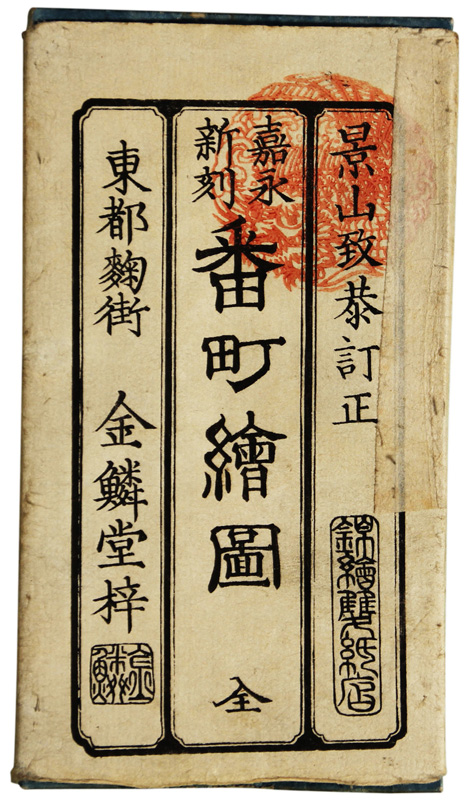 景山致恭訂正
錦繪雙紙店
嘉永
新刻
番町繪圖
全
東都麴街
金鱗堂梓